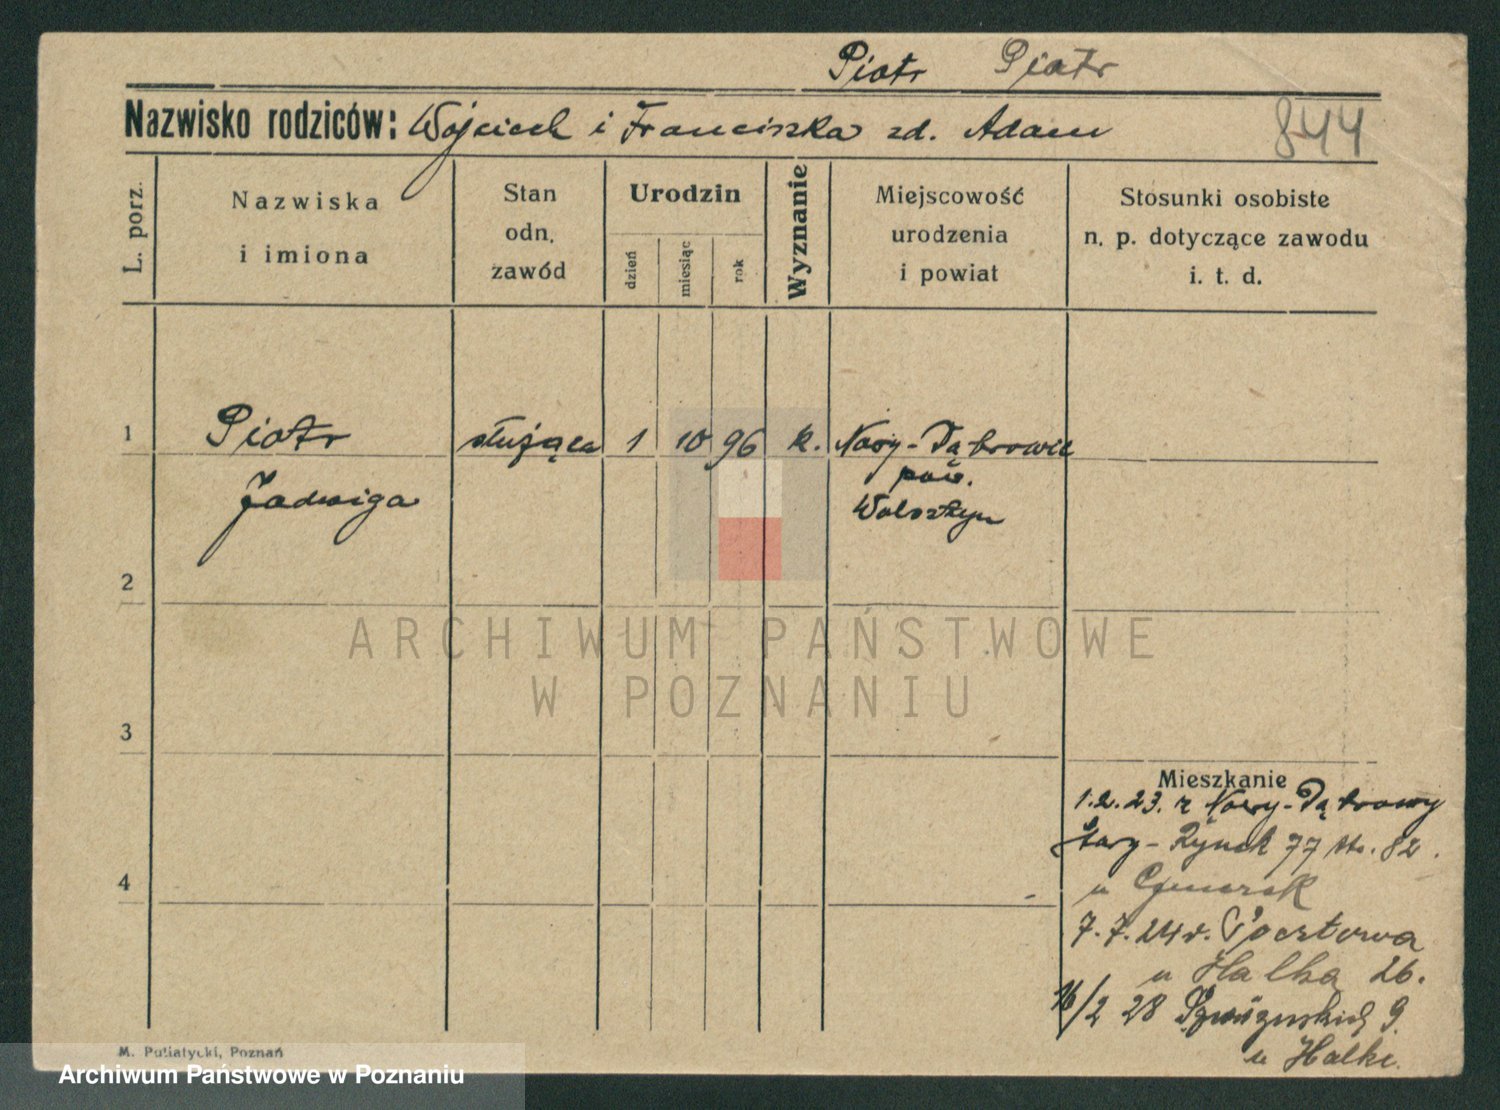 Piotr Piotr
Nazwisko rodziców: Wojciech i Franciszka zd. Adam
844
L. porz.
Nazwiska
i imiona
Stan
odn.
zawód
Urodzin
dzień
miesiąc
rok
Wyznanie
Miejscowość
urodzenia
i powiat
Stosunki osobiste
n. p. dotyczące zawodu
i. t. d.
1 Piotr służąca 1 10 96 k. Nowy-Dąbrowie
pow.
Jadwiga Wolsztyn
2
ARCHIWUM PAŃSTWOWE
W POZNANIU
3
Mieszkanie
1.2.23. z Nowy-Dąbrowy
Stary-Rynek 77 82.
u
4
7.7.24 r. Pocztowa
u Halka 26.
16/2 28 9.
u Halke.
M. Putiatycki, Poznań
Archiwum Państwowe w Poznaniu